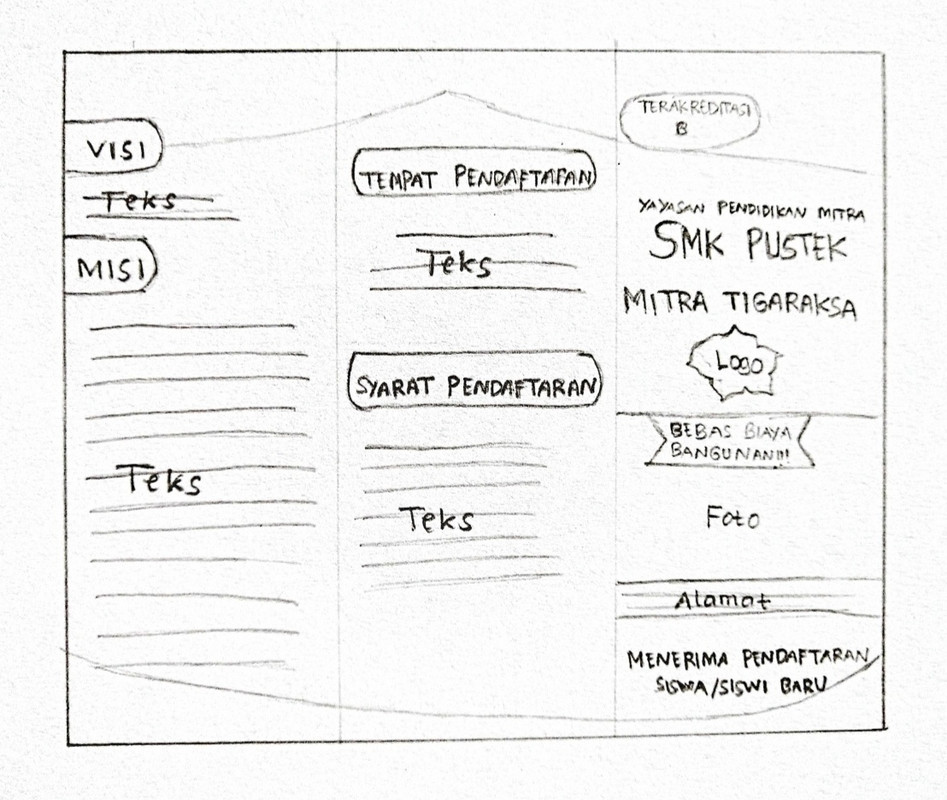 VISI
Teks
MISI
Teks
TEMPAT PENDAFTARAN
Teks
SYARAT PENDAFTARAN
Teks
TERAKREDITASI
B
YAYASAN PENDIDIKAN MITRA
SMK PUSTEK
MITRA TIGARAKSA
Logo
BEBAS BIAYA
BANGUNAN!!!
Foto
Alamat
MENERIMA PENDAFTARAN
SISWA/SISWI BARU